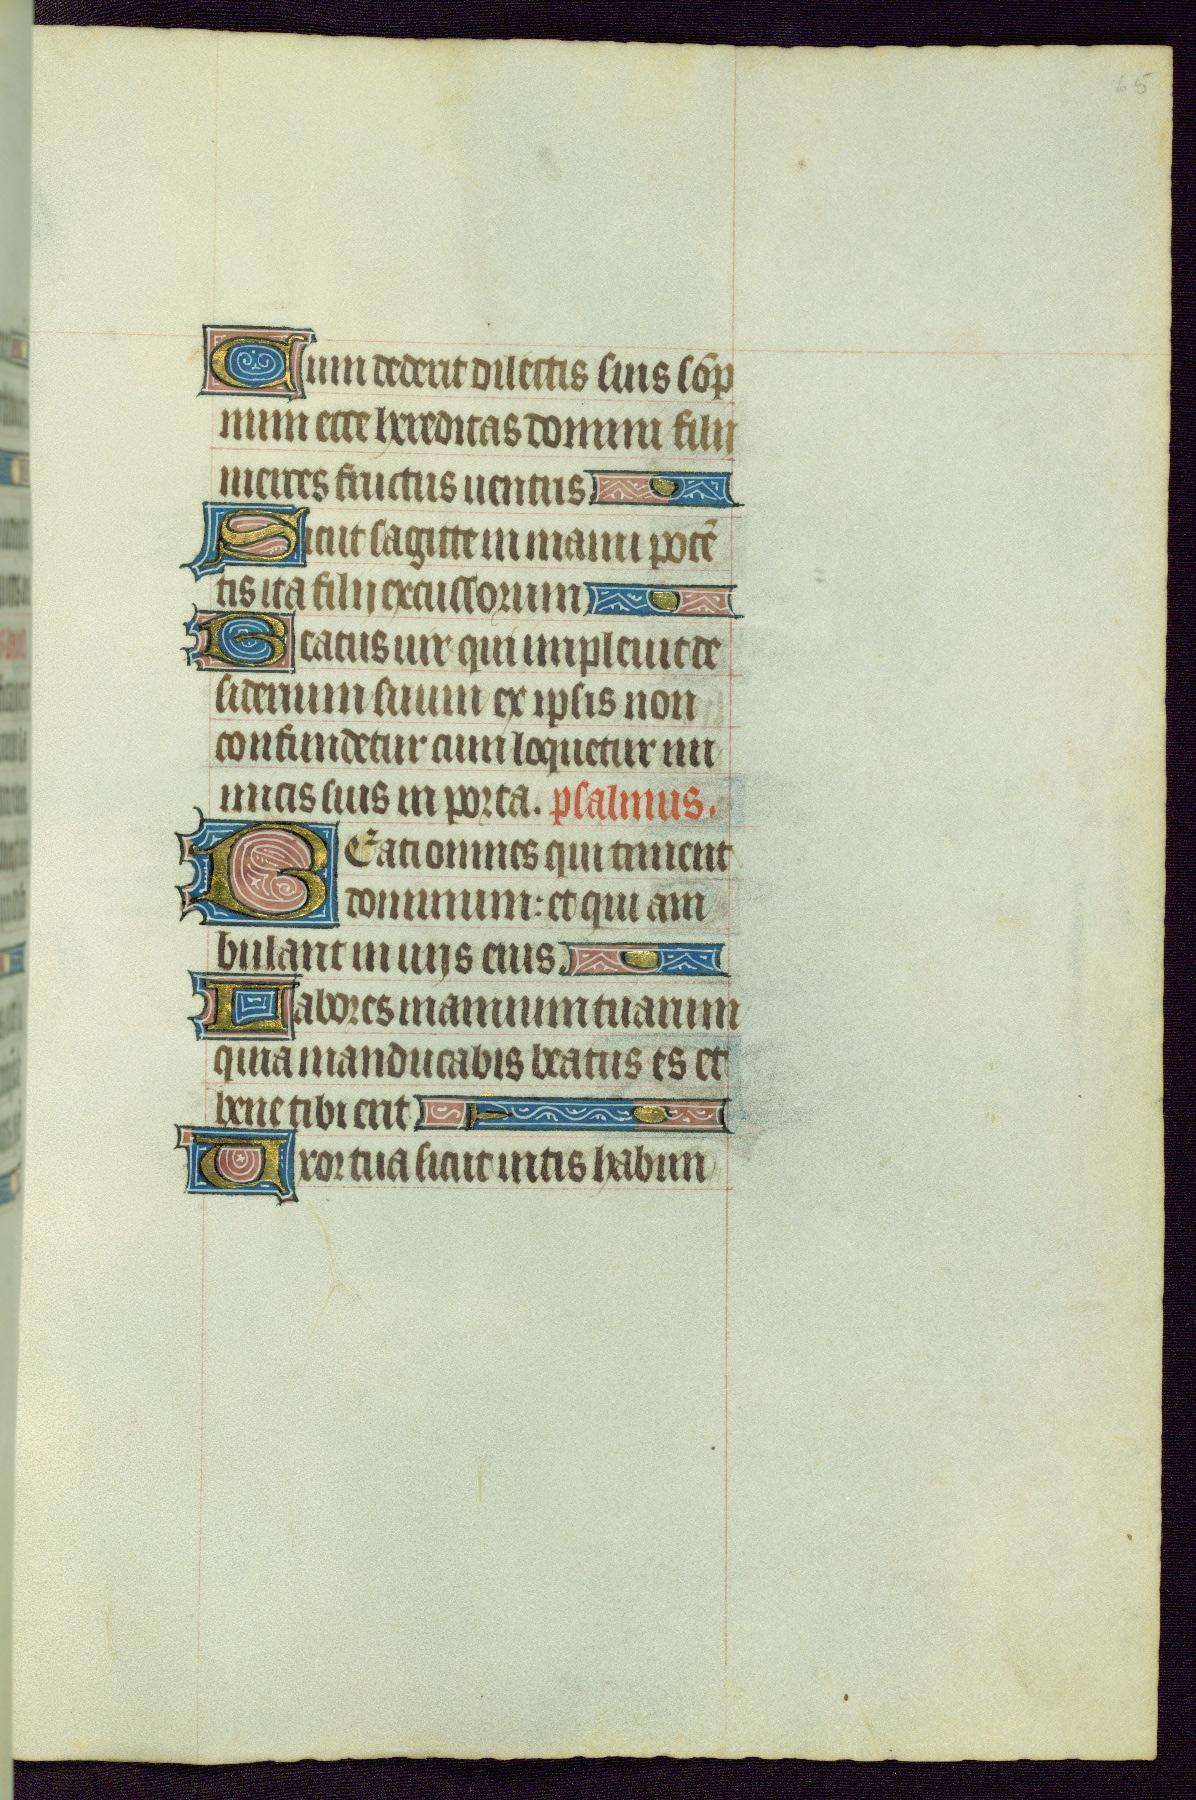 65
Cum dederit dilectis suis sōp
num ecce hereditas domini filij
merces fructus uentris
Sicut sagitte in manu potē
tis ita filij excussorum
Beatus uir qui impleuit de
siderium suum ex ipsis non
confundetur cum loquetur ini
micis suis in porta. psalmus.
BEati omnes qui timent
dominum: et qui am
bulant in uijs eius.
Labores manuum tuarum
quia manducabis beatus es et
bene tibi erit
Uxor tua sicut uitis habun